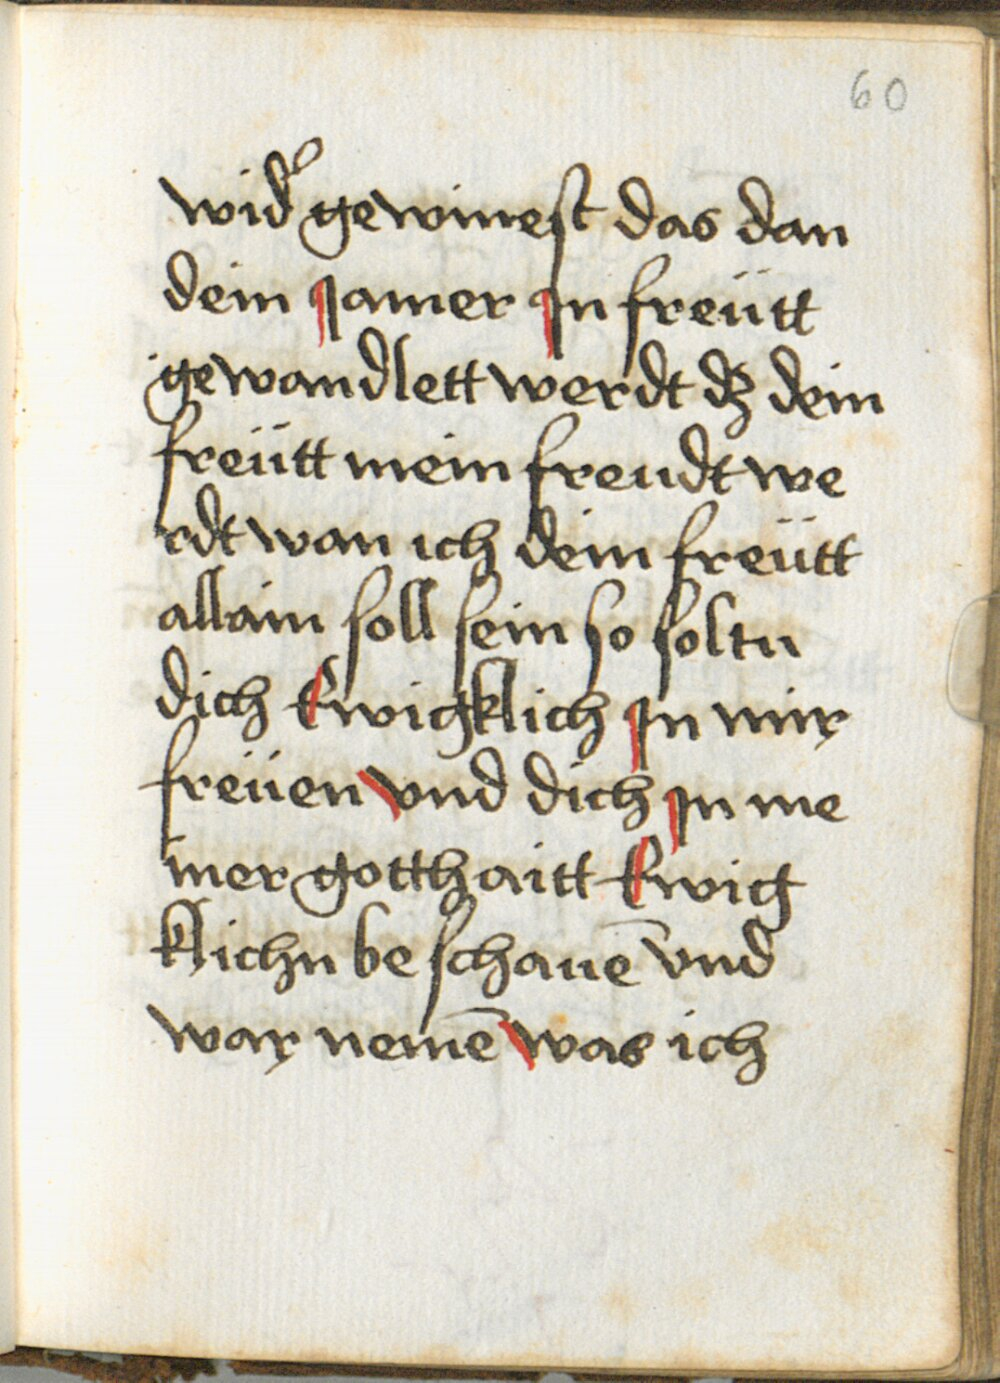 60
wid' gewinest das dan
dein Jamer In freütt
gewandlett werdt dz dein
freütt mein freudt we
rdt wan ich dein freütt
allain soll sein so soltu
dich Ewigklich In mir
freüen vnd dich In me
iner gotthaitt Ewig
klichn be schauē vnd
war nemē was ich